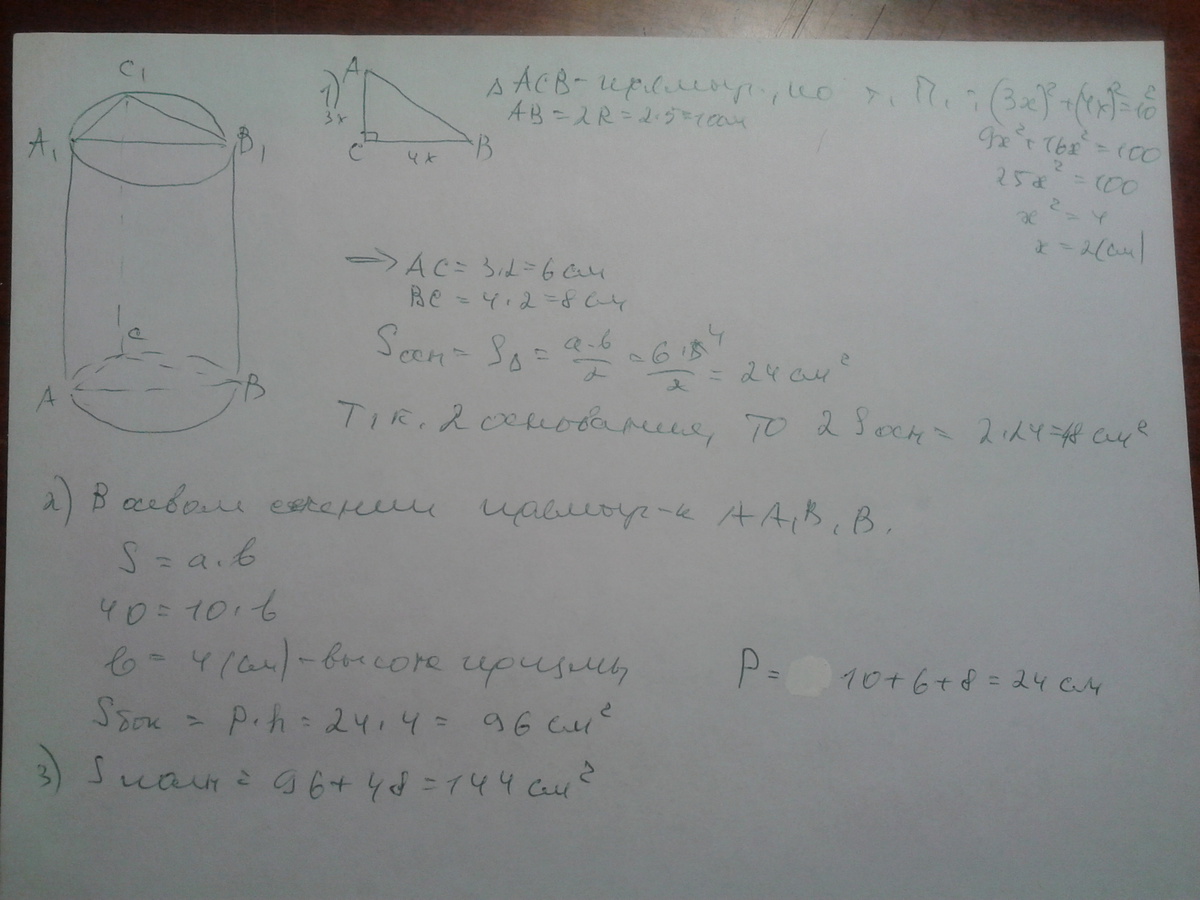 C₁
A₁ B₁
C
A B
1) A
3x
C 4x B
Δ ACB - прямоуг., по т. П.: (3x)² + (4x)² = 10²
AB = 2R = 2·5 = 10см
9x² + 16x² = 100
25x² = 100
x² = 4
x = 2(см)
=> AC = 3·2 = 6 см
BC = 4·2 = 8 см
Sосн = SΔ = a·b/2 = 6·8⁴/2 = 24 см²
Т.к. 2 основания, то 2 Sосн = 2·24 = 48 см²
2) В осевом сечении прямоуг-к AA₁B₁B.
S = a·b
40 = 10·b
b = 4 (см) - высота призмы
P = 10 + 6 + 8 = 24 см
Sбок = P·h = 24·4 = 96 см²
3) Sполн = 96 + 48 = 144 см²